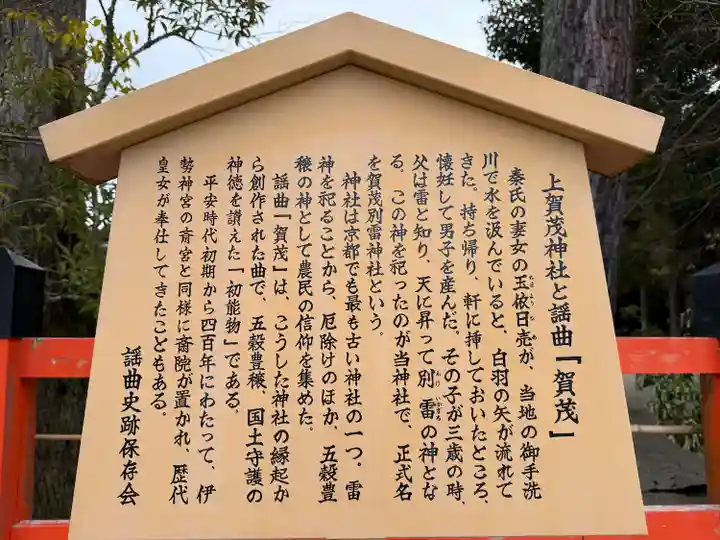 上賀茂神社と謡曲「賀茂」
秦氏の妻女の玉依日売が、当地の御手洗
川で水を汲んでいると、白羽の矢が流れて
きた。持ち帰り、軒に挿しておいたところ、
懐妊して男子を産んだ。その子が三歳の時、
父は雷と知り、天に昇って別雷の神とな
る。この神を祀ったのが当神社で、正式名
を賀茂別雷神社という。
神社は京都でも最も古い神社の一つ。雷
神を祀ることから、厄除けのほか、五穀豊
穣の神として農民の信仰を集めた。
謡曲「賀茂」は、こうした神社の縁起か
ら創作された曲で、五穀豊穣、国土守護の
神徳を讃えた「初能物」である。
平安時代初期から四百年にわたって、伊
勢神宮の斉宮と同様に斎院が置かれ、歴代
皇女が奉仕してきたこともある。
謡曲史跡保存会